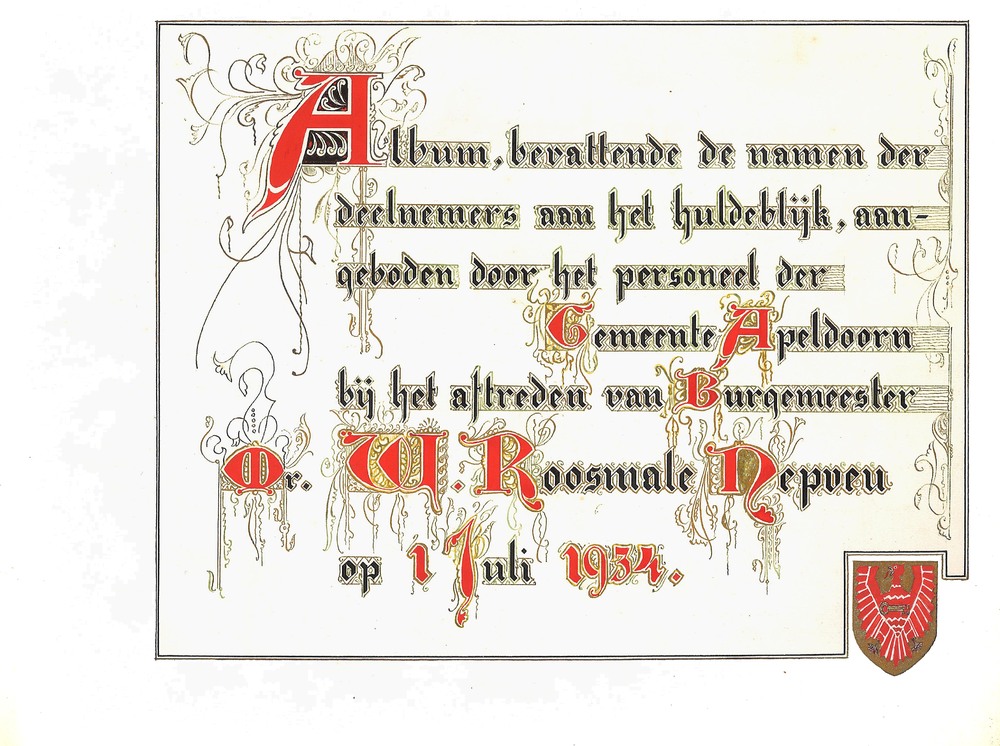 Album, bevattende de namen der
deelnemers aan het huldeblijk, aan-
geboden door het personeel der
Gemeente Apeldoorn
bij het aftreden van Burgemeester
Mr. W. Roosmale Nepveu
op 1 Juli 1934.